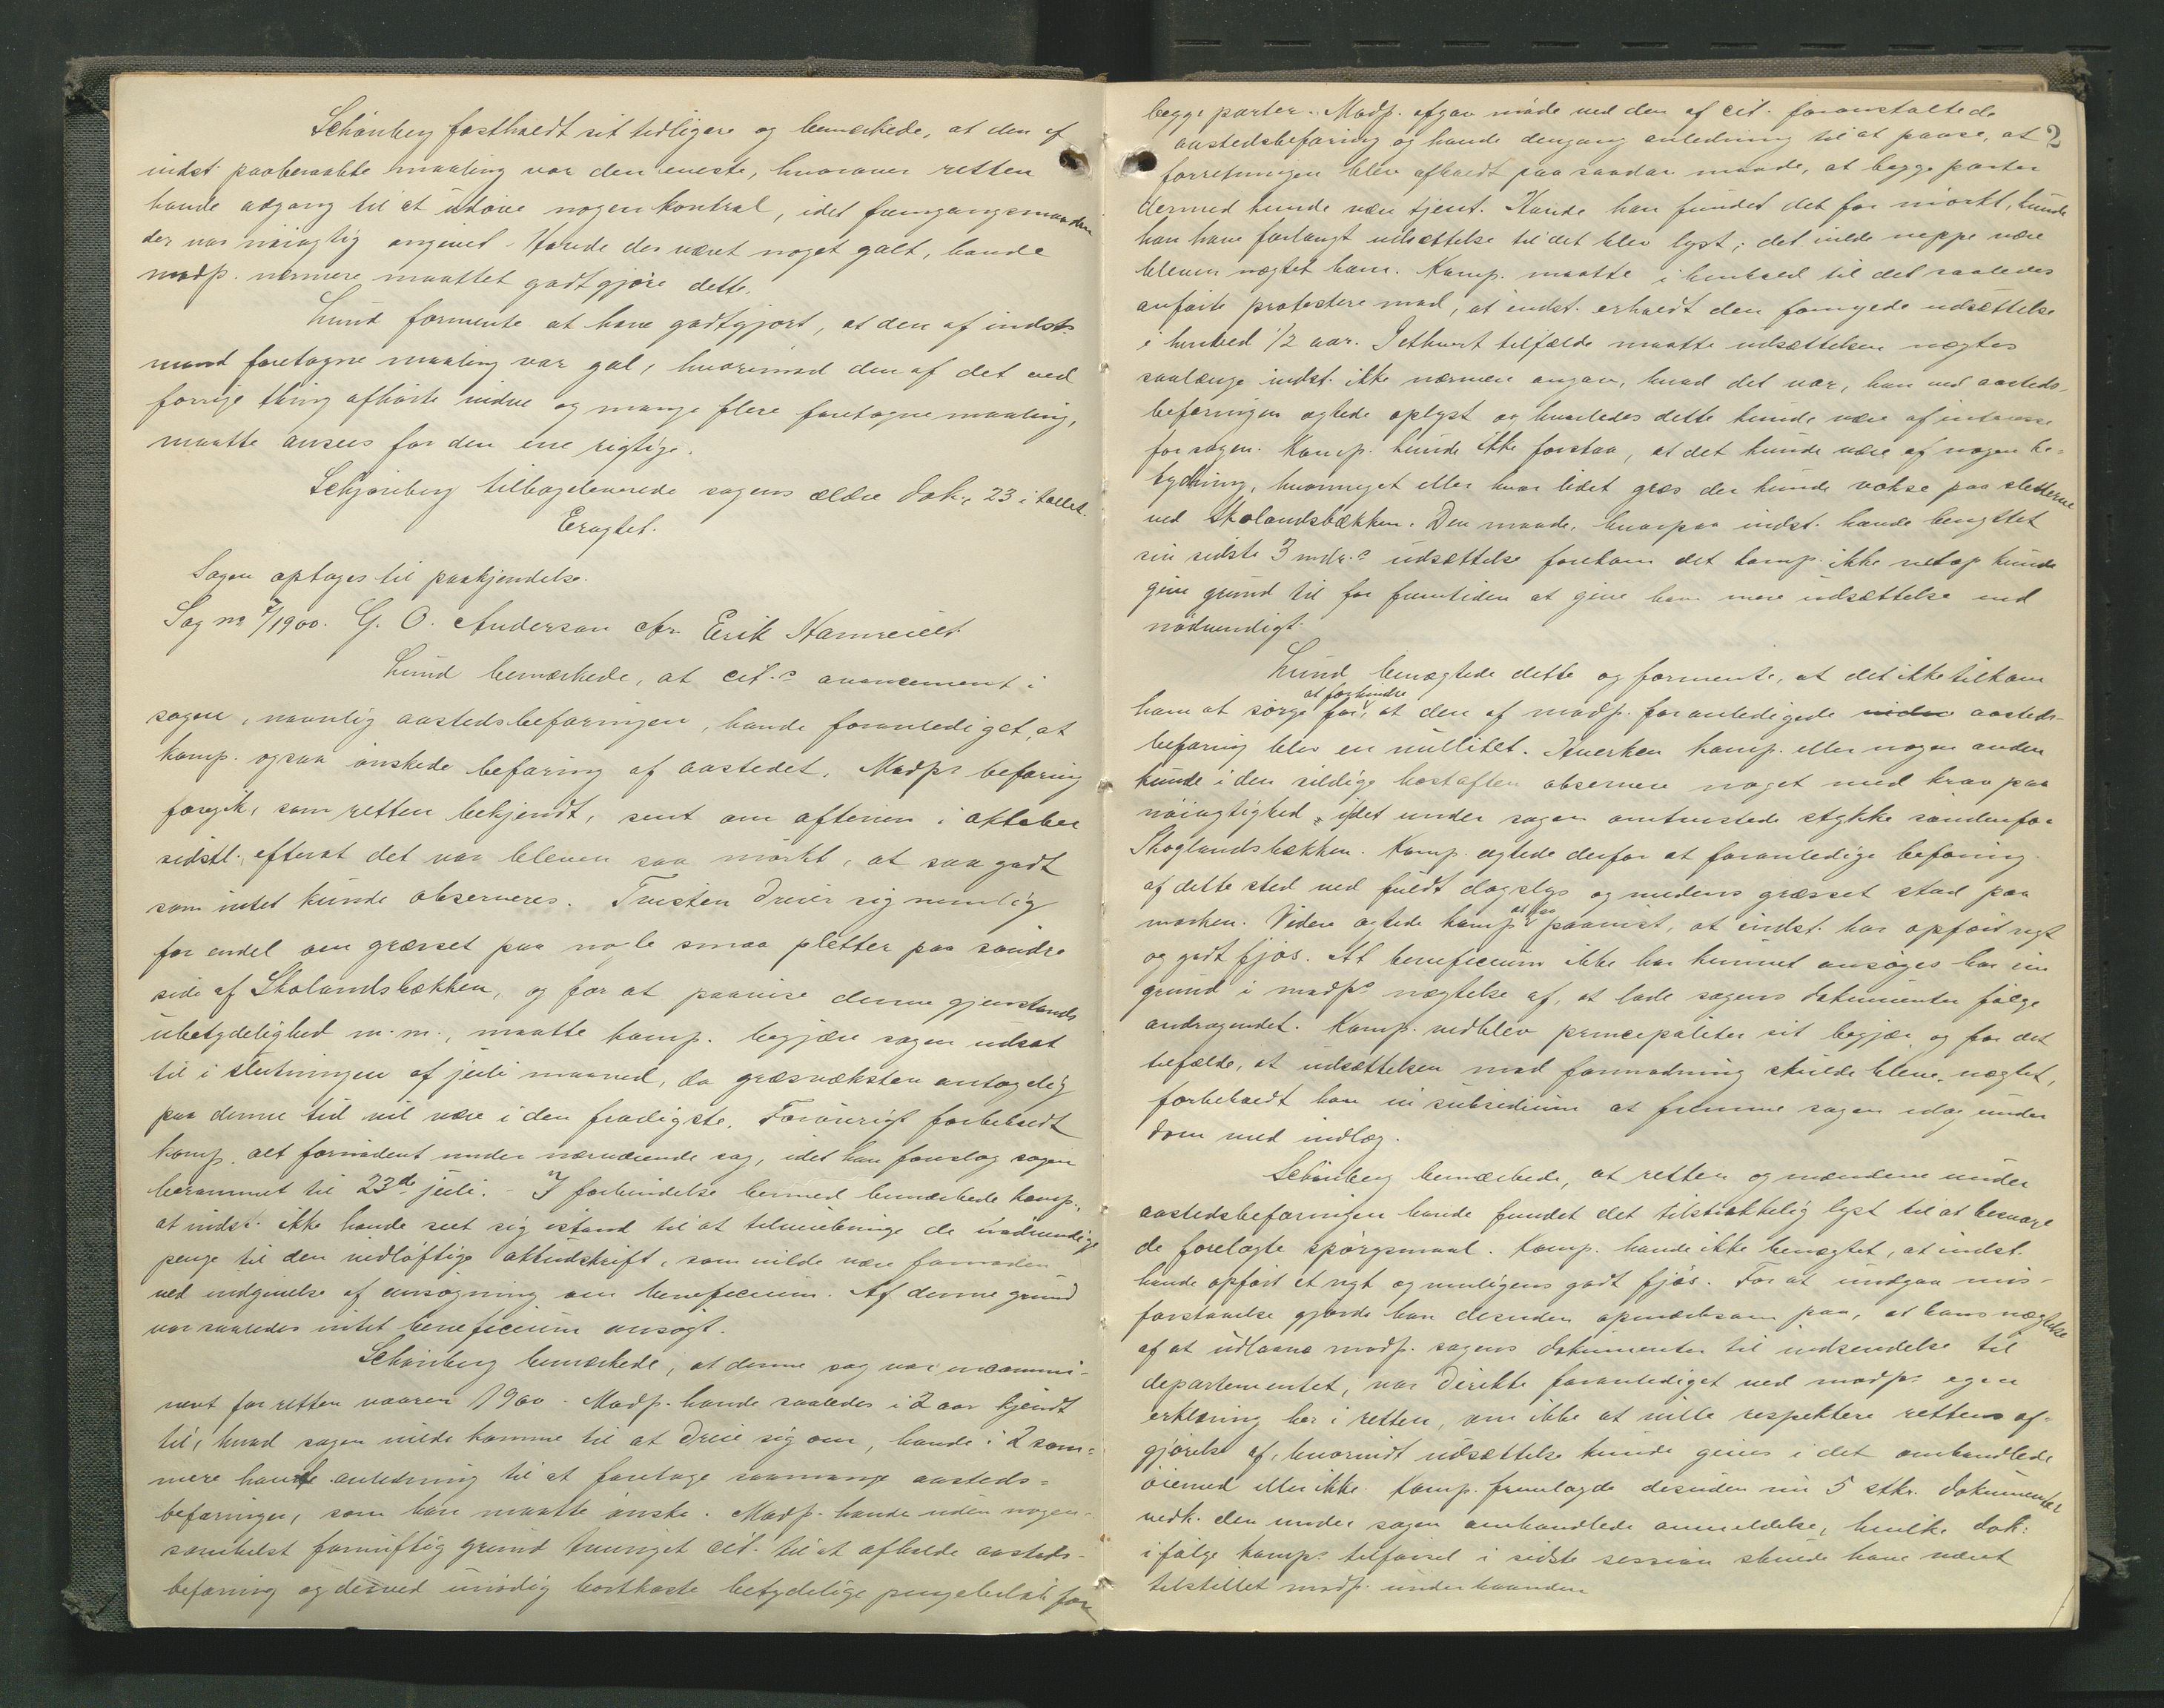 Schønberg fastholdt sit tidligere og bemærkede, at den af
indst. paaberaabte maaling var den eneste, hvorover retten
havde adgang til at udøve nogen kontrol, idet fremgangsmaaden
der var nøiagtig angivet. Havde der været noget galt, havde
modp. nærmere maattet godtgjøre dette.
Lund formente at have godtgjort, at den af indst.
mand foretagne maaling var gal, hvorimod den af det ved
forrige thing afhørte vidne og mange flere foretagne maaling,
maatte ansees for den ene rigtige.
Schjønberg tilbageleverede sagens ældre dok., 23 i tallet.
Eragtet.
Sagen optages til paakjendelse.
Sag no 7/1900. G. O. Anderson ctr. Erik Hamreielt
Lund bemærkede, at cit.s avancement i
sagen, navnlig aastedsbefaringen, havde foranlediget, at
komp. ogsaa ønskede befaring af aastedet. Modps befaring
foregik, som retten bekjendt, sent om aftenen i oktober
sidstl. efterat det var bleven saa mørkt, at saa godt
som intet kunde observeres. Tvisten dreier sig nemlig
for endel om græsset paa nogle smaa pletter paa søndre
side af Skolandsbækken, og for at paavise denne gjenstands
ubetydelighed m.m., maatte komp. begjære sagen udsat
til i slutningen af juli maaned, da græsvæksten antagelig
paa denne tid vil være i den frodigste. Forøvrigt forbeholdt
komp. alt fornødent under nærværende sag, idet han foreslog sagen
berammet til 23de juli. - I forbindelse hermed bemærkede komp.,
at indst. ikke havde seet sig istand til at tilveiebringe de nødvendige
penge til den vidløftige aktudskrift, som vilde være fornøden
ved indgivelse af ansøgning om beneficium. Af denne grund
var saaledes intet beneficium ansøgt.
Schønberg bemærkede, at denne sag var incammi-
neret for retten vaaren 1900. Modp. havde saaledes i 2 aar kjendt
til, hvad sagen vilde komme til at dreie sig om, havde i 2 som-
mere havt anledning til at foretage saamange aasteds-
befaringer, som han maatte ønske. Modp. havde uden nogen-
somhelst fornuftig grund tvunget cit. til at afholde aasteds-
befaring og derved unødig bortkaste betydelige pengebeløb for
2
begge parter. Modp. afgav møde ved den af cit. foranstaltede
aastedsbefaring og havde dengang anledning til at paase, at
forretningen blev afholdt paa saadan maade, at begge parter
dermed kunde være tjent. Havde han fundet det for mørkt, kunde
han have forlangt udsættelse til det blev lyst; det vilde neppe være
bleven nægtet ham. Komp. maatte i henhold til det saaledes
anførte protestere mod, at indst. erholdt den fornyede udsættelse
i henved 1/2 aar. I ethvert tilfælde maatte udsættelsen nægtes
saalænge indst. ikke nærmere angav, hvad det var, han ved aasteds-
befaringen agtede oplyst og hvorledes dette kunde være af interesse
for sagen. Komp. kunde ikke forstaa, at det kunde være af nogen be-
tydning, hvormeget eller hvor lidet græs der kunde vokse paa sletterne
ved Skolandsbækken. Den maade, hvorpaa indst. havde benyttet
sin sidste 3 mdr.s udsættelse forekom det komp. ikke netop kunde
give grund til for fremtiden at give ham mere udsættelse end
nødvendigt.
Lund benægtede dette og formente, at det ikke tilkom
at forhindre
ham at sørge for, at den af modp. foranledigede vidne aasteds-
befaring blev en nullitet. Hverken komp. eller nogen anden
kunde i den sildige høstaften observere noget med krav paa
nøiagtighed idet under sagen omtvistede stykke søndenfor
Skoglandsbækken. Komp. agtede derfor at foranledige befaring
af dette sted ved fuldt dagslys og medens græsset stod paa
marken. Videre agtede komp. at faa paavist, at indst. har opført nyt
og godt fjøs. At beneficium ikke har kunnet ansøges har sin
grund i modps nægtelse af, at lade sagens dokumenter følge
andragendet. Komp. vedblev principaliter sit begjær og for det
tilfælde, at udsættelsen mod formodning skulde blive nægtet,
forbeholdt han in subsidium at fremme sagen idag under
dom med indlæg.
Schønberg bemærkede, at retten og mændene under
aastedsbefaringen havde fundet det tilstrækkelig lyst til at besvare
de forelagte spørgsmaal. Komp. havde ikke benægtet, at indst.
havde opført et nyt og muligens godt fjøs. For at undgaa mis-
forstaaelse gjorde han desuden opmærksom paa, at hans nægtelse
af at udlaane modp. sagens dokumenter til indsendelse til
departementet, var direkte foranlediget ved modps egen
erklæring her i retten, om ikke at ville respektere rettens af-
gjørelse af, hvorvidt udsættelse kunde gives i det omhandlede
øiemed eller ikke. Komp. fremlagde desuden nu 5 stkr. dokumenter
vedk. den under sagen omhandlede anmeldelse, hvilke dok.
ifølge komps tilførsel i sidste session skulde have været
tilstillet modp. underhaanden